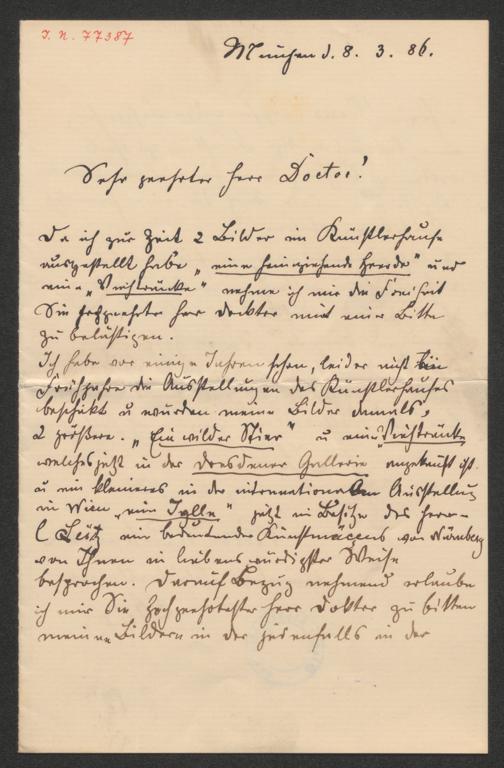 I. N. 77387
München d. 8. 3. 86.
Sehr geehrter Herr Doctor!
Da ich zur Zeit 2 Bilder im Künstlerhause
ausgestellt habe „eine heimziehende Heerde" und
eine „Viehtränke" nehme ich mir die Freiheit
Sie hochgeehrter Herr Doktor mit einer Bitte
zu belästigen.
Ich habe vor einigen Jahren schon, leider nicht
Frühjahre die Ausstellungen des Künstlerhauses
beschikt u wurden meine Bilder damals,
2 größere. „Ein wilder Stier" u eine „Viehtränke
welches jetzt in der Dresdener Gallerie angekauft ist.
u ein kleineres in der internationalen Ausstellung
in Wien „ein Idylle" jetzt im Besitze des Herrn
ein bedeutender Kunstmäcens von Nürnberg
von Ihnen in liebenswürdigster Weise
besprochen. Darauf Bezug nehmend erlaube
ich mir Sie hochgeehrtester Herr Doktor zu bitten
meinen Bildern in der jedenfalls in der